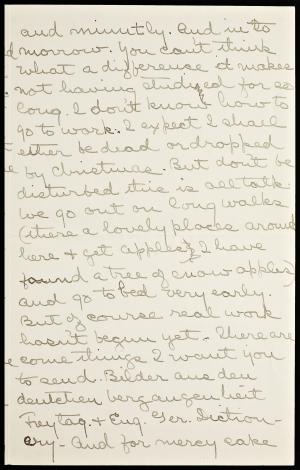 and minutly. And in to
morrow. You can't think
what a difference it makes
not having studyed for so
long. I don't know how to
go to work. I expect I shall
either be dead or dropped
by Christmas. But don't be
disturbed this is all talk.
We go out on long walks
(there a lovely places around
here & get apples & I have
found a tree of snow apples)
and go to bed very early.
But of course real work
hasn't begun yet. There are
some things I want you
to send. Bilder aus den
deutchen bergangenheit
Freytag. & Eng. Ger. Diction-
ery. And for mercy sake